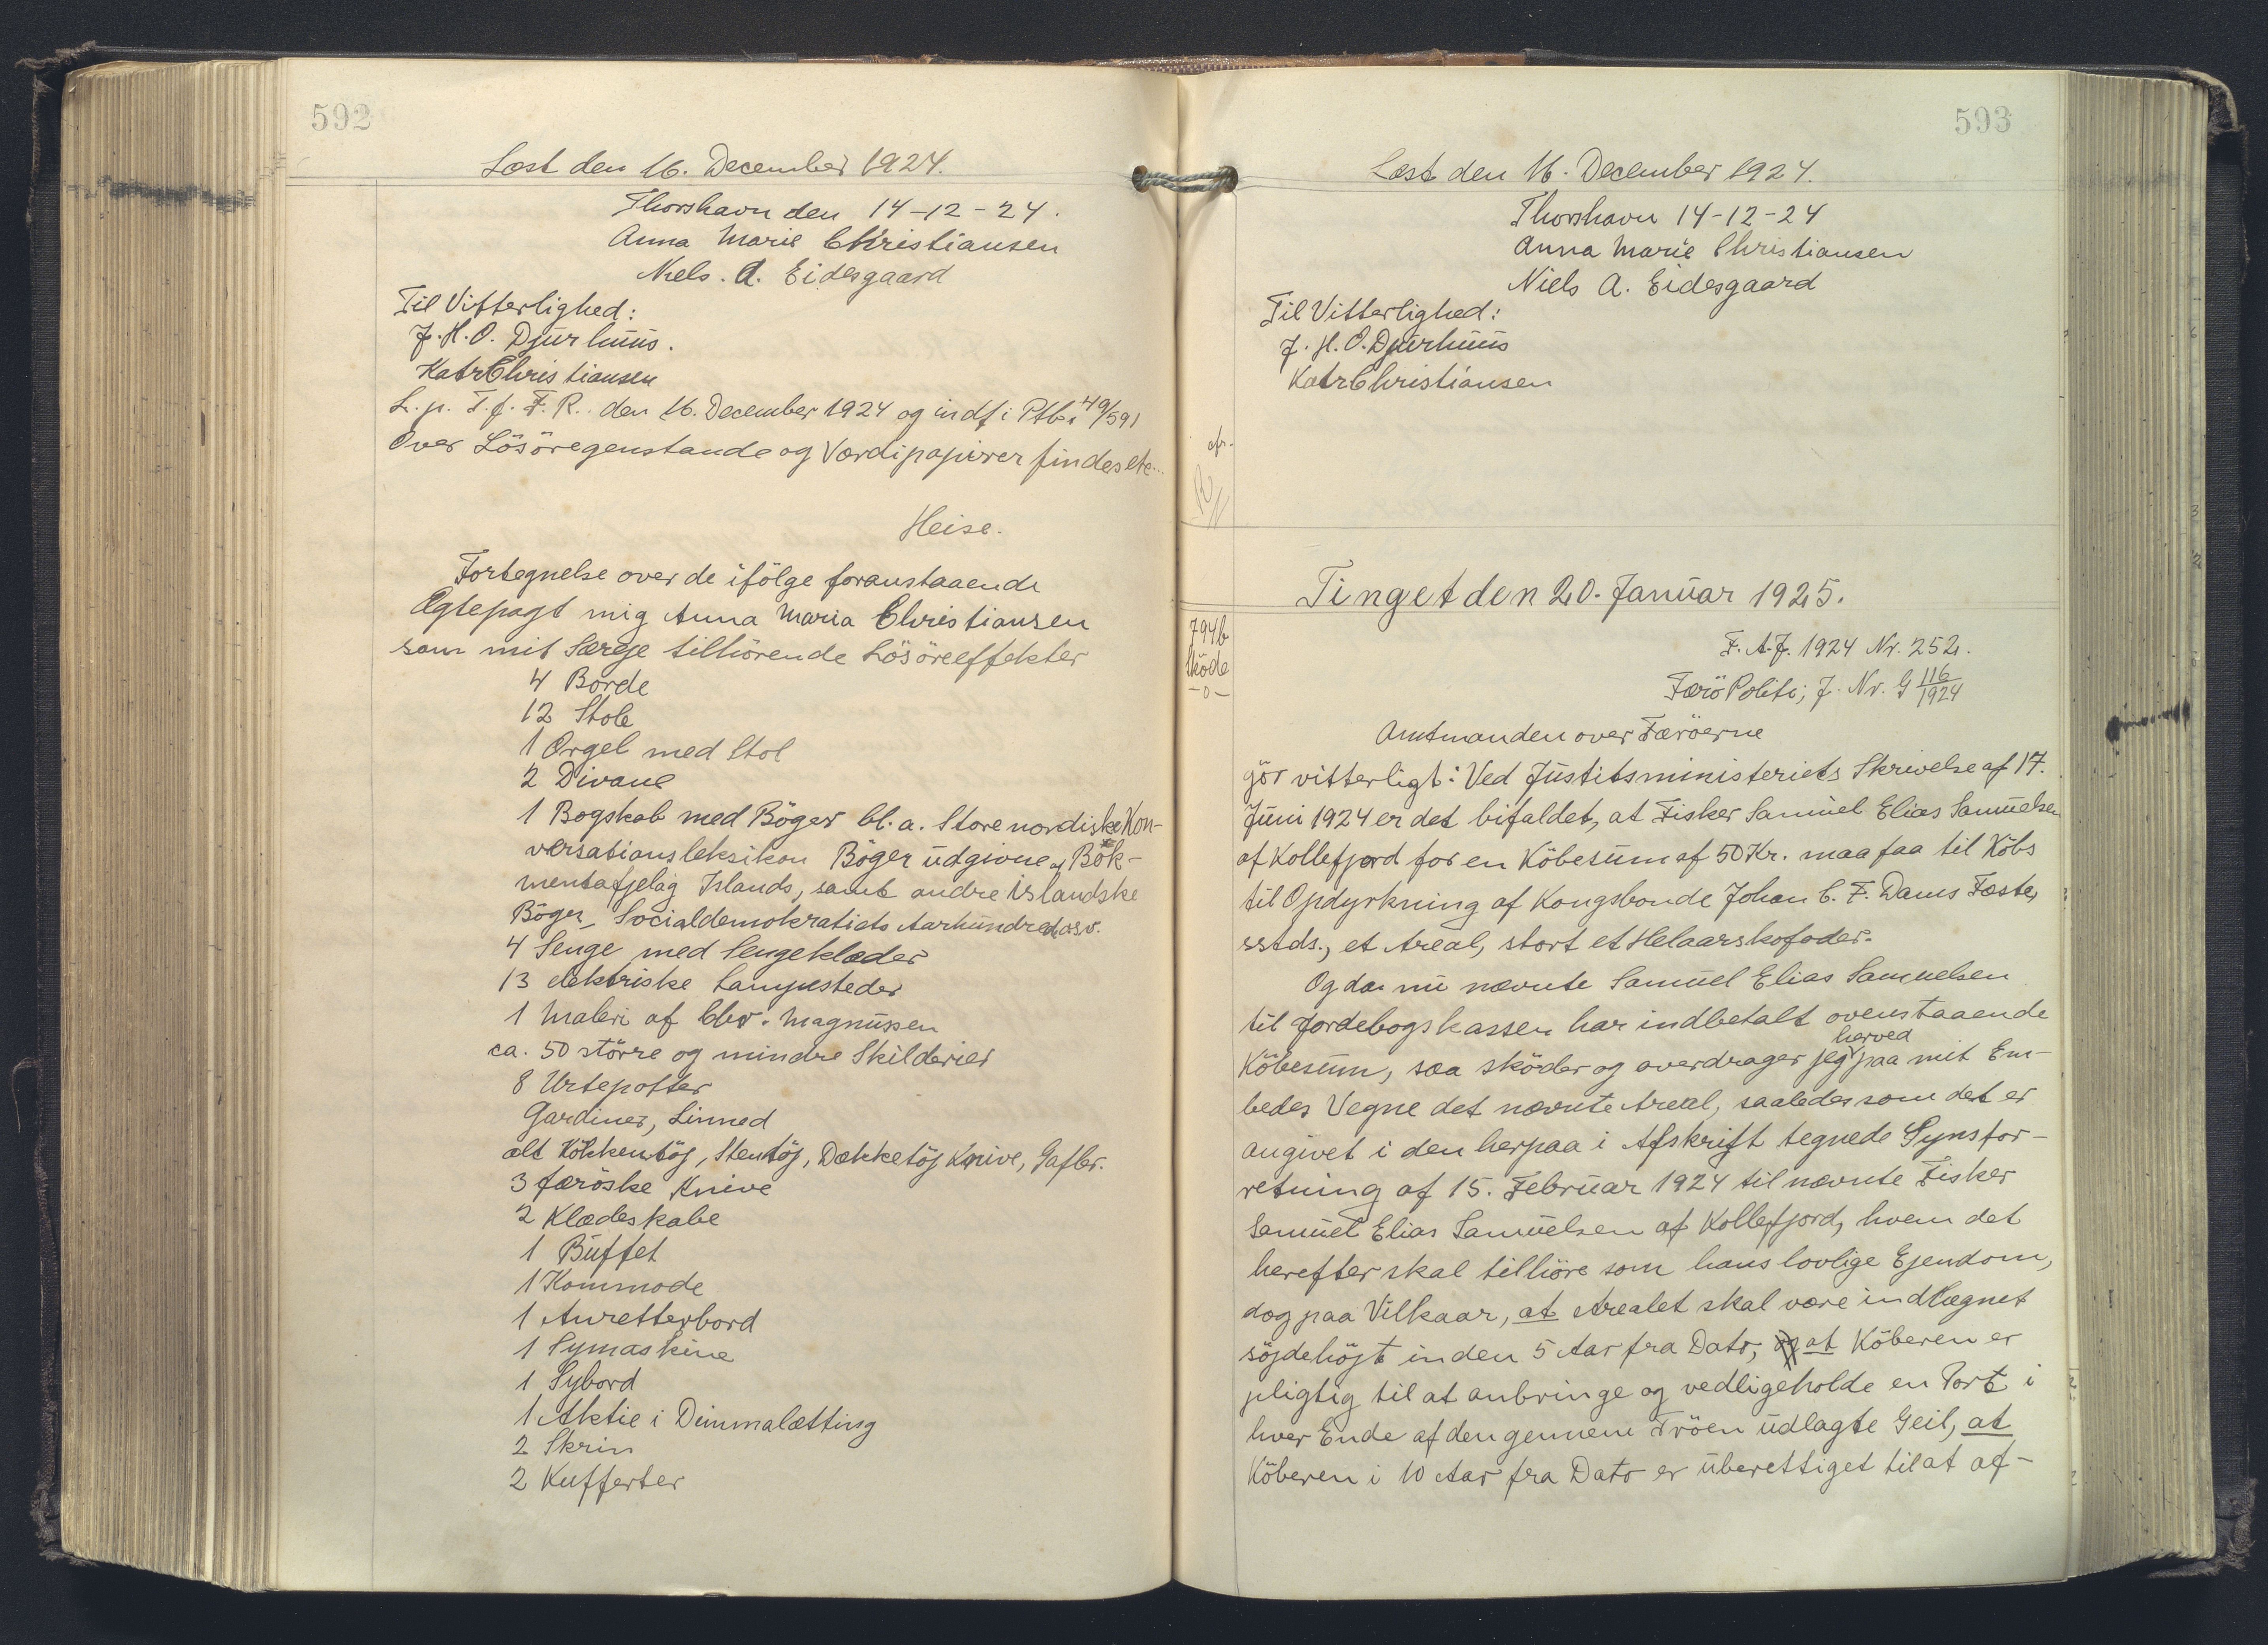 592
Læst den 16. December 1924.
Thorshavn den 14-12-24.
Anna Marie Christiansen
Niels. A. Eidesgaard
Til Vitterlighed:
J. H. O. Djurhuus.
Katr Christiansen
L. p. T. f. F. R. den 16. December 1924 og indf i Ptb. 49/591
Over Lösöregenstande og Værdipapirer findes etc...
Heise.
Fortegnelse over de ifölge foranstaaende
Ægtepagt mig Anna Maria Christiansen
som mit Særeje tilhörende Lösöreeffekter
4 Borde
12 Stole
1 Orgel med Stol
2 Divane
1 Bogskab med Böger bl. a. Store nordiske Kon-
versationsleksikon Böger udgivne af Bók-
mentafjelag Islands, samt andre islandske
Böger, Socialdemokratiets Aarhundred, osv.
4 Senge med Sengeklæder
13 elektriske Lampesteder
1 Maleri af Chr. Magnussen
ca. 50 större og mindre Skilderier
8 Urtepotter
Gardiner, Linned
alt Kökkentöj, Stentöj, Dækketöj Knive, Gafler.
3 færöske Knive
2 Klædeskabe
1 Buffet
1 Kommode
1 Anretterbord
1 Symaskine
1 Sybord
1 Aktie i Dimmalætting
2 Skrin
2 Kufferter
593
Læst den 16. December 1924.
Thorshavn 14-12-24
Anna Marie Christiansen
Niels A. Eidesgaard
Til Vitterlighed:
J. H. O. Djurhuus
Katr Christiansen
afr.
Tinget den 20. Januar 1925.
794b
Sköde
-o-
F. A. J. 1924 Nr. 252.
Færö Politi, J. Nr. G 116/1924
Amtmanden over Færöerne
gör vitterligt: Ved Justitsministeriets Skrivelse af 17.
Juni 1924 er det bifaldet, at Fisker Samuel Elias Samuelsen
af Kollefjord for en Köbesum af 50 Kr. maa faa til Köbs
til Opdyrkning af Kongsbonde Johan C. F. Dams Fæste,
sstds., et Areal, stort et Helaarskofoder.
Og da nu nævnte Samuel Elias Samuelsen
til Jordebogskassen har indbetalt ovenstaaende
Köbesum, saa sköder og overdrager jeg herved paa mit Em-
bedes Vegne det nævnte Areal, saaledes som det er
angivet i den herpaa i Afskrift tegnede Synsfor-
retning af 15. Februar 1924 til nævnte Fisker
Samuel Elias Samuelsen af Kollefjord, hvem det
herefter skal tilhöre som hans lovlige Ejendom,
dog paa Vilkaar, at Arealet skal være indhegnet
söjdehöjt inden 5 Aar fra Dato, og at Köberen er
pligtig til at anbringe og vedligeholde en Port i
hver Ende af den gennem Tröen udlagte Geil, at
Köberen i 10 Aar fra Dato er uberettiget til at af-